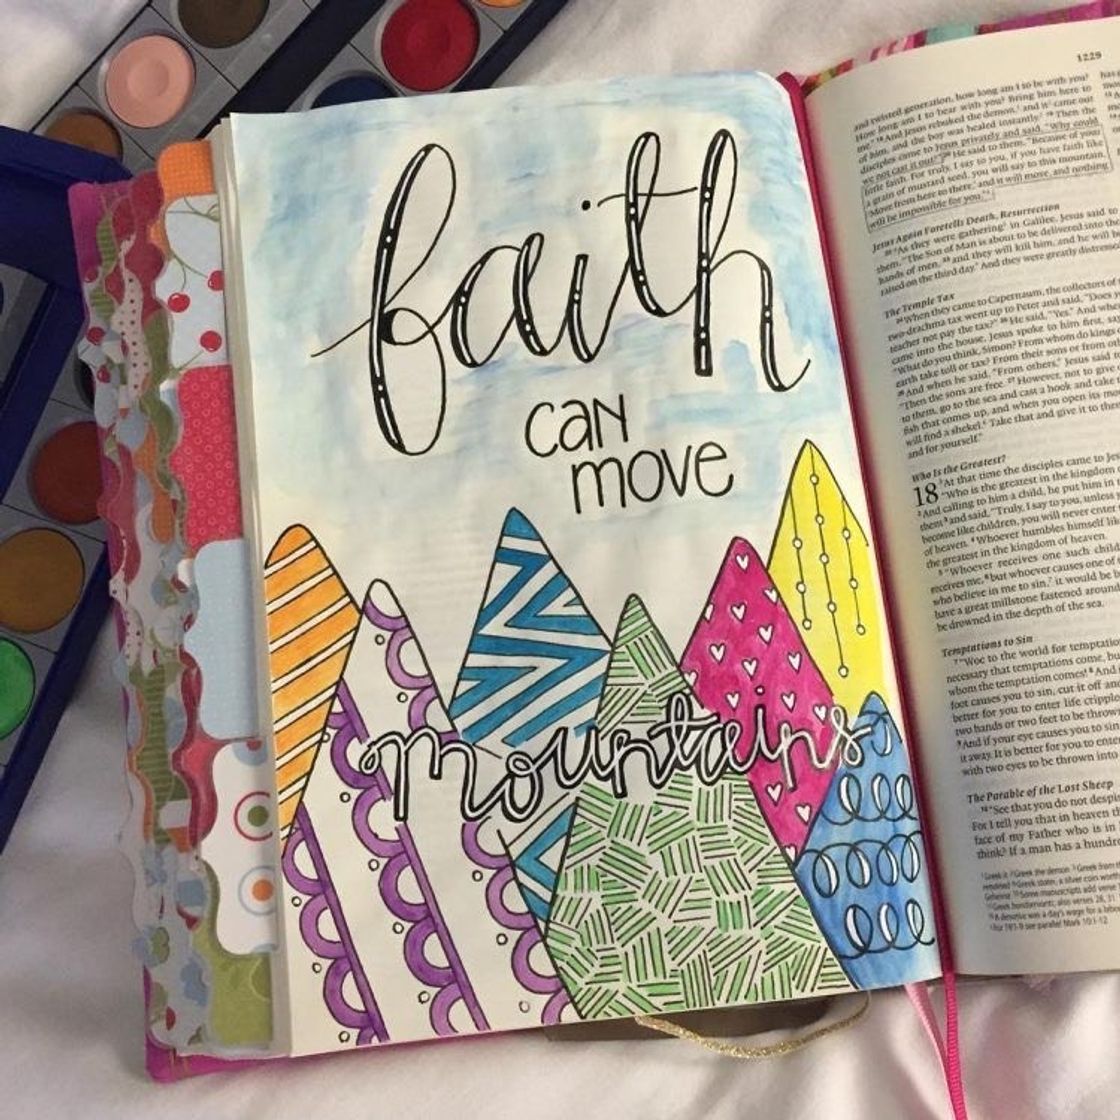 faith
can
move
mountains
1229
and twisted generation, how long am I to be with you?
How long am I to bear with you? Bring him here to
me." And Jesus rebuked the demon, and it came out
of him, and the boy was healed instantly. 19 Then the
disciples came to Jesus privately and said, "Why could
we not cast it out?" 20 He said to them, "Because of your
little faith. For truly, I say to you, if you have faith like
a grain of mustard seed, you will say to this mountain,
'Move from here to there,' and it will move, and nothing
will be impossible for you."
Jesus Again Foretells Death, Resurrection
22 As they were gathering in Galilee, Jesus said to
them, "The Son of Man is about to be delivered into the
hands of men, 23 and they will kill him, and he will be
raised on the third day." And they were greatly distressed.
The Temple Tax
24 When they came to Capernaum, the collectors of
two-drachma tax went up to Peter and said, "Does
teacher not pay the tax?" 25 He said, "Yes." And when
came into the house, Jesus spoke to him first, say
"What do you think, Simon? From whom do kings
earth take toll or tax? From their sons or from oth
26 And when he said, "From others," Jesus said to
"Then the sons are free. 27 However, not to give
to them, go to the sea and cast a hook and take
fish that comes up, and when you open its mo
will find a shekel. Take that and give it to the
and for yourself."
Who Is the Greatest?
18 At that time the disciples came to Jes
"Who is the greatest in the kingdom
2 And calling to him a child, he put him in
them 3 and said, "Truly, I say to you, unless
become like children, you will never enter
of heaven. 4 Whoever humbles himself l
the greatest in the kingdom of heaven.
5 "Whoever receives one such child
receives me, 6 but whoever causes one of
who believe in me to sin, it would be b
have a great millstone fastened around
be drowned in the depth of the sea.
Temptations to Sin
7 "Woe to the world for temptation
necessary that temptations come, bu
whom the temptation comes! 8 And
foot causes you to sin, cut it off and
better for you to enter life cripple
two hands or two feet to be thrown
9 And if your eye causes you to sin
it away. It is better for you to ente
with two eyes to be thrown into
The Parable of the Lost Sheep
10 "See that you do not despis
For I tell you that in heaven th
face of my Father who is in
think? If a man has a hundr